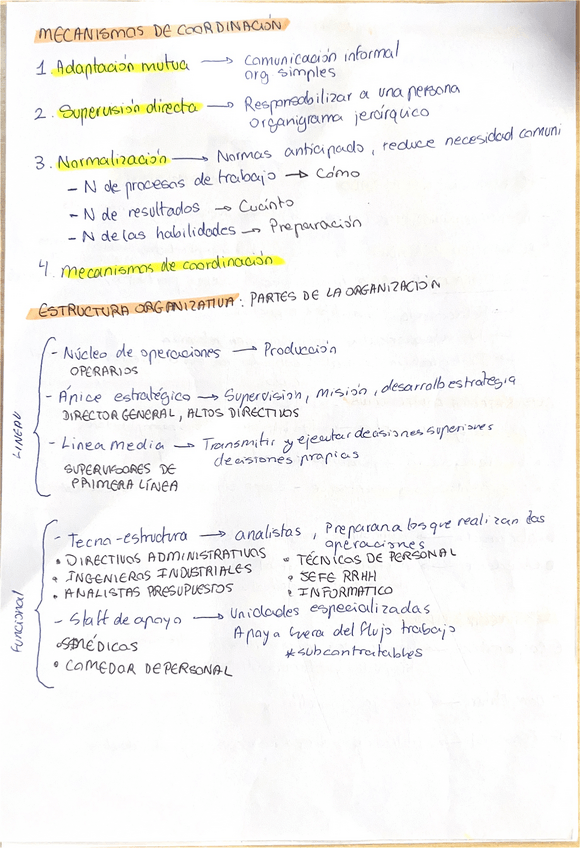 MECANISMOS DE COORDINACIÓN
1. Adaptación mutua → Comunicación informal
org simples
2. Supervisión directa → Responsabilizar a una persona
organigrama jerárquico
3. Normalización → Normas anticipado, reduce necesidad comuni
- N de procesos de trabajo → Cómo
- N de resultados → Cuánto
- N de las habilidades → Preparación
4. Mecanismos de coordinación
ESTRUCTURA ORGANIZATIVA: PARTES DE LA ORGANIZACIÓN
LINEAL
- Núcleo de operaciones → Producción
OPERARIOS
- Ápice estratégico → Supervision, misión, desarrollo estrategia
DIRECTOR GENERAL, ALTOS DIRECTIVOS
- Linea media → Transmitir y ejecutar decisiones superiores
decisiones propias
SUPERVISORES DE
PRIMERA LÍNEA
Funcional
- Tecno-estructura → analistas, Preparan a los que realizan las
operaciones
• DIRECTIVOS ADMINISTRATIVOS • TÉCNICOS DE PERSONAL
• INGENIEROS INDUSTRIALES • JEFE RRHH
• ANALISTAS PRESUPUESTOS • INFORMATICO
- Staff de apoyo → Unidades especializadas
Apoyo fuera del flujo trabajo
*subcontratables
• MÉDICOS
• COMEDOR DE PERSONAL